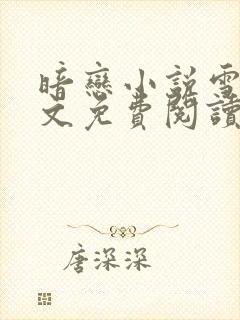 暗戀小說雪
文免費閱讀
唐深深